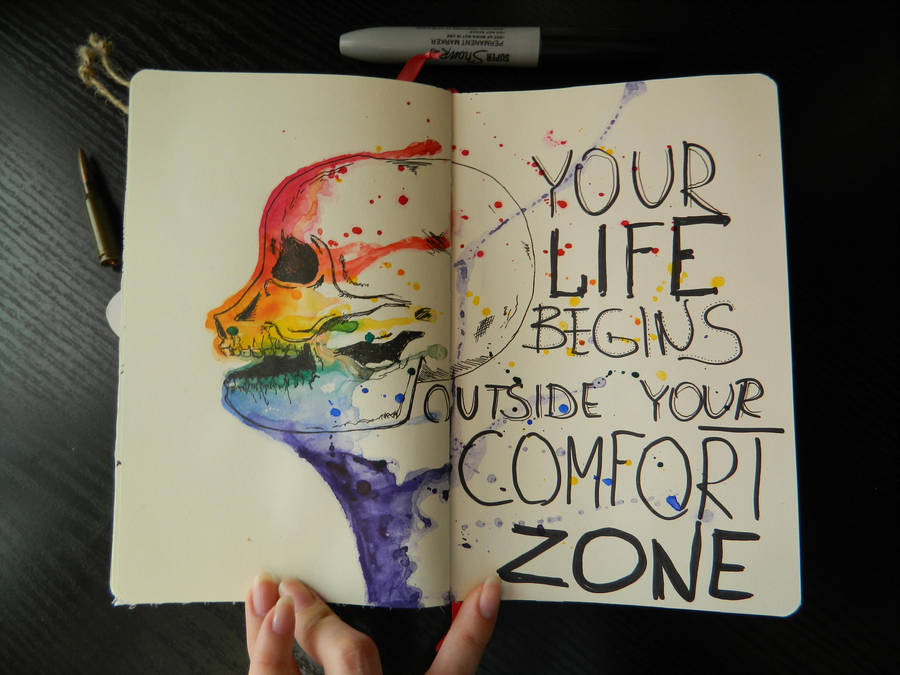 SUPER Sharpie
PERMANENT MARKER
YOUR
LIFE
BEGINS
OUTSIDE YOUR
COMFORT
ZONE